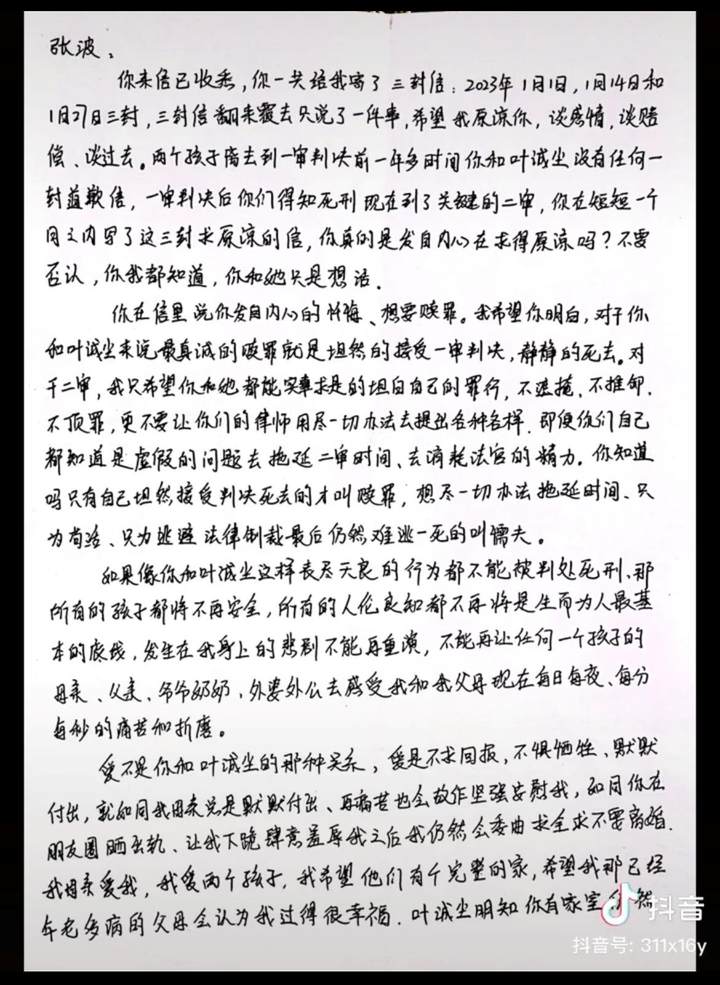 张波，
你来信已收悉，你一共给我寄了三封信：2023年1月1日，1月14日和
1月27日三封，三封信翻来覆去只说了一件事，希望我原谅你，谈感情，谈赔
偿、谈过去。两个孩子离去到一审判决前一年多时间你和叶诚尘没有任何一
封道歉信，一审判决后你们得知死刑现在到了关键的二审，你在短短一个
月之内写了这三封求原谅的信，你真的是发自内心在求得原谅吗？不要
否认，你我都知道，你和她只是想活．
你在信里说你发自内心的忏悔、想要赎罪。我希望你明白，对于你
和叶诚尘来说最真诚的赎罪就是坦然的接受一审判决，静静的死去。对
于二审，我只希望你和她都能实事求是的坦白自己的罪行，不遮掩、不推卸．
不顶罪，更不要让你们的律师用尽一切办法去提出各种各样．即便你们自己
都知道是虚假的问题去拖延二审时间、去消耗法官的精力。你知道
吗只有自己坦然接受判决死去的才叫赎罪，想尽一切办法拖延时间、只
为苟活、只为逃避法律制裁最后仍然难逃一死的叫懦夫。
如果像你和叶诚尘这样丧尽天良的行为都不能被判处死刑、那
所有的孩子都将不再安全，所有的人伦良知都不再将是生而为人最基
本的底线，发生在我身上的悲剧不能再重演，不能再让任何一个孩子的
母亲、父亲、爷爷奶奶、外婆外公去感受我和我父母现在每日每夜、每分
每秒的痛苦和折磨。
爱不是你和叶诚尘的那种关系，爱是不求回报，不惧牺牲、默默
付出，就如同我母亲总是默默付出、再痛苦也会故作坚强安慰我，如同你在
朋友圈晒出轨、让我下跪肆意羞辱我之后我仍然会委曲求全求不要离婚．
我母亲爱我，我爱两个孩子，我希望他们有个完整的家，希望我那已经
年老多病的父母会认为我过得很幸福．叶诚尘明知你有家室仍然
抖音
抖音号: 311x16y